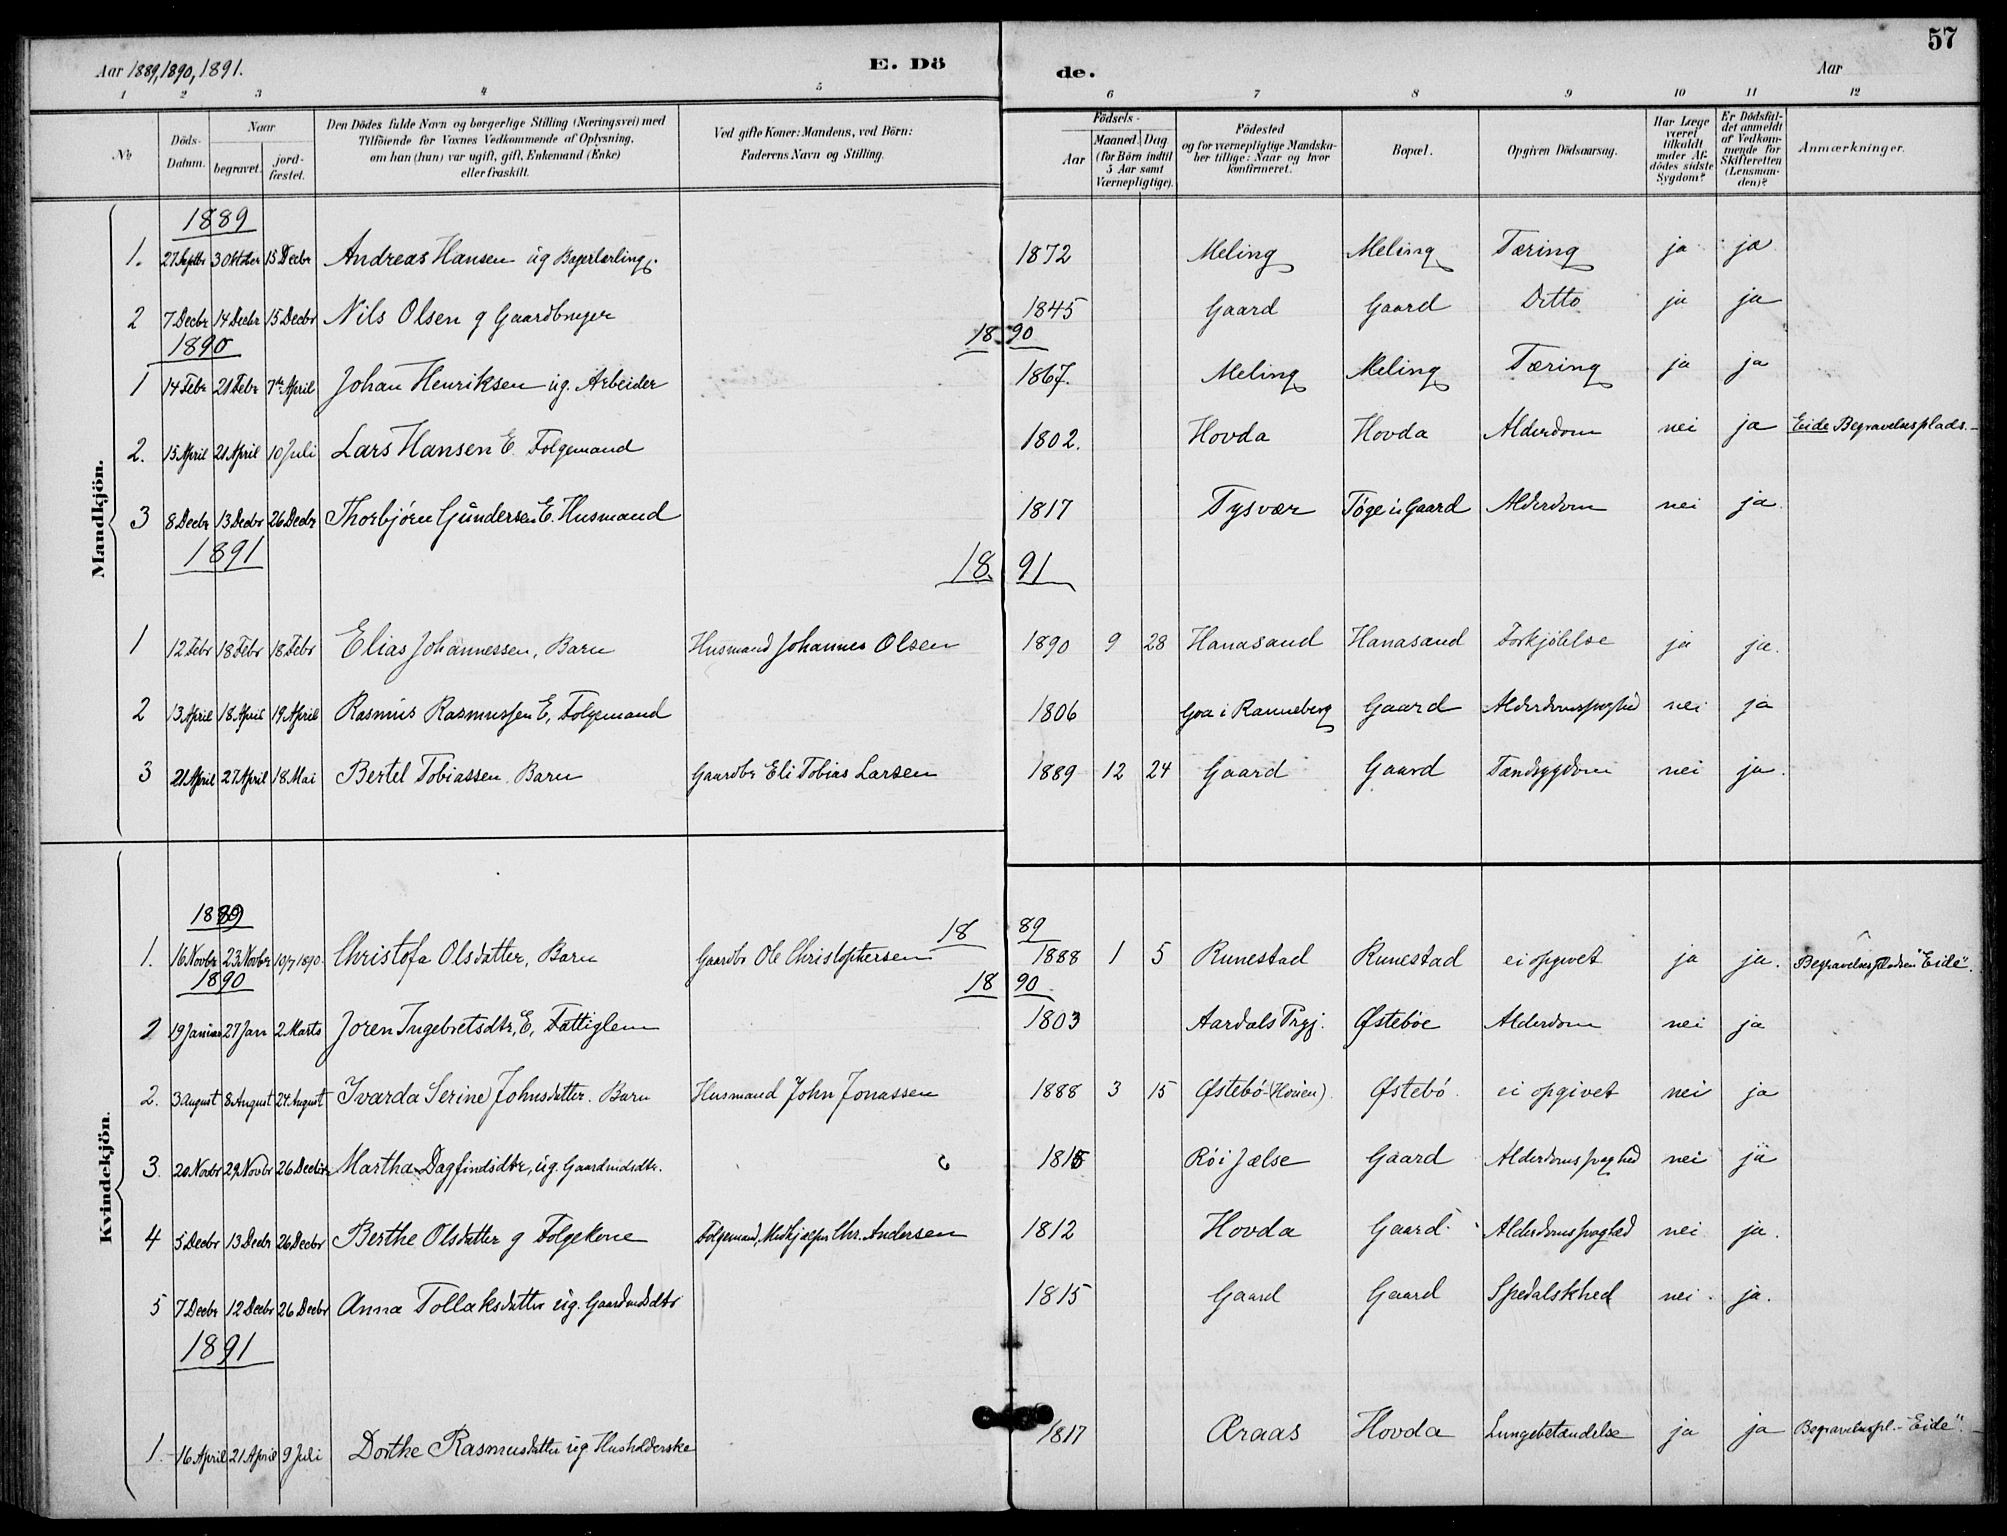 57
Aar 1889, 1890, 1891.
E. Dö
de.
Aar
1 2 3 4 5 6 7 8 9 10 11 12
No
Döds-Datum.
Naar
begravet.
jord-fæstet.
Den Dödes fulde Navn og borgerlige Stilling (Næringsvei) med
Tilföiende for Voxnes Vedkommende af Oplysning,
om han (hun) var ugift, gift, Enkemand (Enke)
eller fraskilt.
Ved gifte Koner: Mandens, ved Börn:
Faderens Navn og Stilling.
Födsels-
Aar
Maaned.
Dag
(for Börn indtil
5 Aar samt
Værnepligtige).
Födested
og for værnepligtige Mandska-
ber tillige: Naar og hvor
konfirmeret.
Bopæl.
Opgiven Dödsaarsag.
Har Læge
været
tilkaldt
under Af-
dödes sidste
Sygdom?
Er Dödsfal-
det anmeldt
af Vedkom-
mende for
Skifteretten
(Lensman-
den)?
Anmærkninger.
Mandkjön.
1889
1. 27 Septbr 3 Oktober 15 Decbr Andreas Hansen ug Bagerlærling. 1872 Meling Meling Tæring ja ja
2 7 Decbr 14 Decbr 15 Decbr Nils Olsen g Gaardbruger 1845 Gaard Gaard Ditto ja ja
1890 18 90
1 14 Febr 21 Febr 7de April Johan Henriksen ug. Arbeider 1867. Meling Meling Tæring ja ja
2. 15 April 21 April 10 Juli Lars Hansen E. Folgemand 1802. Hovda Hovda Alderdom nei ja Eide Begravelsesplads.
3 8 Decbr 13 Decbr 26 Decbr Thorbjørn Gundersen E. Husmand 1817 Tysvær Tøge u Gaard Alderdom nei ja.
1891 18. 91
1 12 Febr 18 Febr 18 Febr Elias Johannessen, Barn Husmand Johannes Olsen 1890 9 28 Hanasand Hanasand Forkjølelse ja ja.
2 13 April 18 April 19 April Rasmus Rasmussen E, Folgemand 1806 Goa i Ranneberg Gaard Alderdomssvaghed nei ja
3 21 April 27 April 18 Mai Bertel Tobiassen. Barn Gaardbr Eli Tobias Larsen 1889 12 24 Gaard Gaard Tandsygdom nei ja.
Kvindekjön.
1889 18 89
1. 16 Novbr 23 Novbr 10/7 1890. Christofa Olsdatter, Barn Gaardbr Ole Christophersen 1888 1 5 Runestad Runestad ei opgivet ja ja. Begravelsespladsen "Eide".
1890 18 90
1 19 Januar 27 Jan 2 Marts Joren Ingebretsdtr, E, Fattiglem 1803 Aardals Prgj. Østebøe Alderdom nei ja
2. 3 August 8 August 24 August Ivarda Serine Johnsdatter. Barn Husmand John Jonassen 1888 3 15 Østebö (Houen). Østebö. ei opgivet nei ja
3. 20 Novbr 29 Novbr 26 Decbr Martha Dagfindsdtr, ug. Gaardmdsdtr. Rö i Jælse Gaard Alderdomssvaghed nei ja
4 5 Decbr 13 Decbr 26 Decbr Berthe Olsdatter g Folgekone Folgemand, Medhjælper Chr. Andersen 1812 Hovda Gaard Alderdomssvaghed nei ja.
5 7 Decbr 12 Decbr 26 Decbr Anna Tollaksdatter ug. Gaardmdsdtr 1815 Gaard Gaard Spedalskhed nei ja.
1891
1. 16 April 21 April 9 Juli Dorthe Rasmusdatter ug Husholderske 1817 Aaraas Hovda Lungebetændelse ja ja Begravelsespl. "Eide".